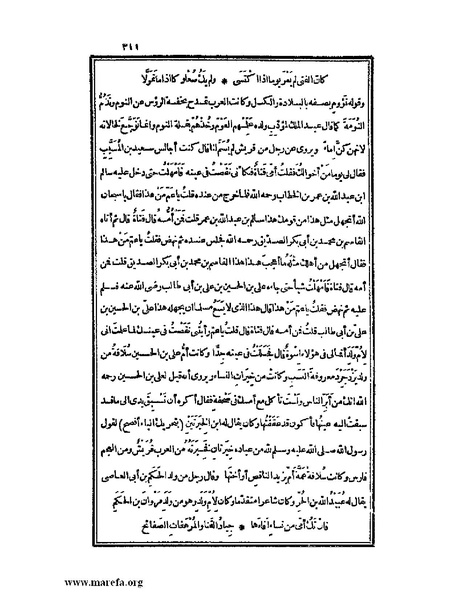 ٣١١
كان الفتى لم يعر يوما اذا اكتسى * ولم يك صعلوكا اذا ما تمولا
وقوله نؤوم يصفه بالبلادة والكسل وكانت العرب تمدح بخفة الرؤس عن النوم وتذم
النومة كما قال عبد الملك لمؤدب ولده علمهم العوم وخذهم بقلة النوم وانما توجع لخالاته
لانهن كن إماء ويروى عن رجل من قريش لم يسم لنا قال كنت أجالس سعيد بن المسيب
فقال لي يوما من أخوالك فقلت أمي فتاة فكأني نقصت في عينه فأمهلت حتى دخل عليه سالم
ابن عبد الله بن عمر بن الخطاب رحمه الله فلما خرج من عنده قلت يا عم من هذا فقال يا سبحان
الله أتجهل مثل هذا من قومك هذا سالم بن عبد الله بن عمر قلت فمن أمه قال فتاة قال ثم أتاه
القاسم بن محمد بن أبي بكر الصديق رحمه الله فجلس عنده ثم نهض فقلت يا عم من هذا
فقال أتجهل من أهلك مثله ما أعجب هذا هذا القاسم بن محمد بن أبي بكر الصديق قلت فمن
أمه قال فتاة فأمهلت شيأ حتى جاءه علي بن الحسين بن علي بن أبي طالب رضي الله عنه فسلم
عليه ثم نهض فقلت يا عم من هذا قال هذا الذي لا يسع مسلما ان يجهله هذا علي بن الحسين بن
علي بن أبي طالب قلت فمن أمه قال فتاة قال قلت يا عم رأيتني نقصت في عينك لما علمت اني
لأم ولد أفمالي في هؤلاء اسوة قال فجللت في عينه جدا وكانت أم علي بن الحسين سلافة من
ولد يزدجرد معروفة النسب وكانت من خيرات النساء ويروى أنه قيل لعلي بن الحسين رحمه
الله انك من أبر الناس ولست تأكل مع أمك في صحفة فقال أكره أن تسبق يدي الى ما قد
سبقت اليه عينها فأكون قد عققتها وكان يقال له ابن الخيرتين (بتحريك الياء أفصح) لقول
رسول الله صلى الله عليه وسلم لله من عباده خيرتان فخيرته من العرب قريش ومن العجم
فارس وكانت سلافة عمة أم يزيد الناقص أو أختها وقال رجل من ولد الحكم بن أبي العاصي
يقال له عبيد الله بن الحر وكان شاعرا متقدما وكان لأم ولد وهو من ولد مروان بن الحكم
فان تك أمي من نساء أفاءها * جياد القنا والمرهفات الصفائح
www.marefa.org